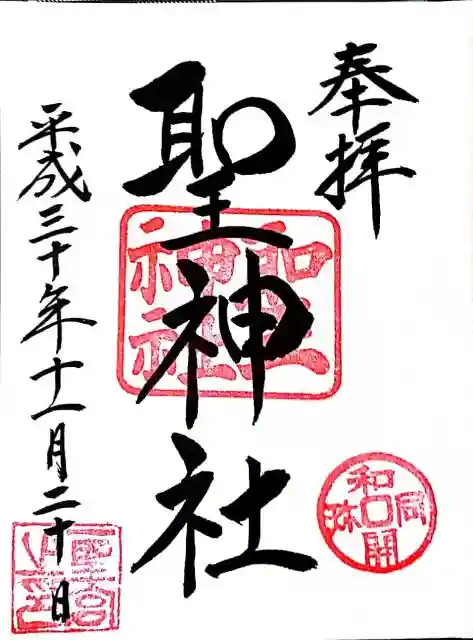 奉拝
聖神社
平成三十年十一月二十日
聖神社
和同開珎